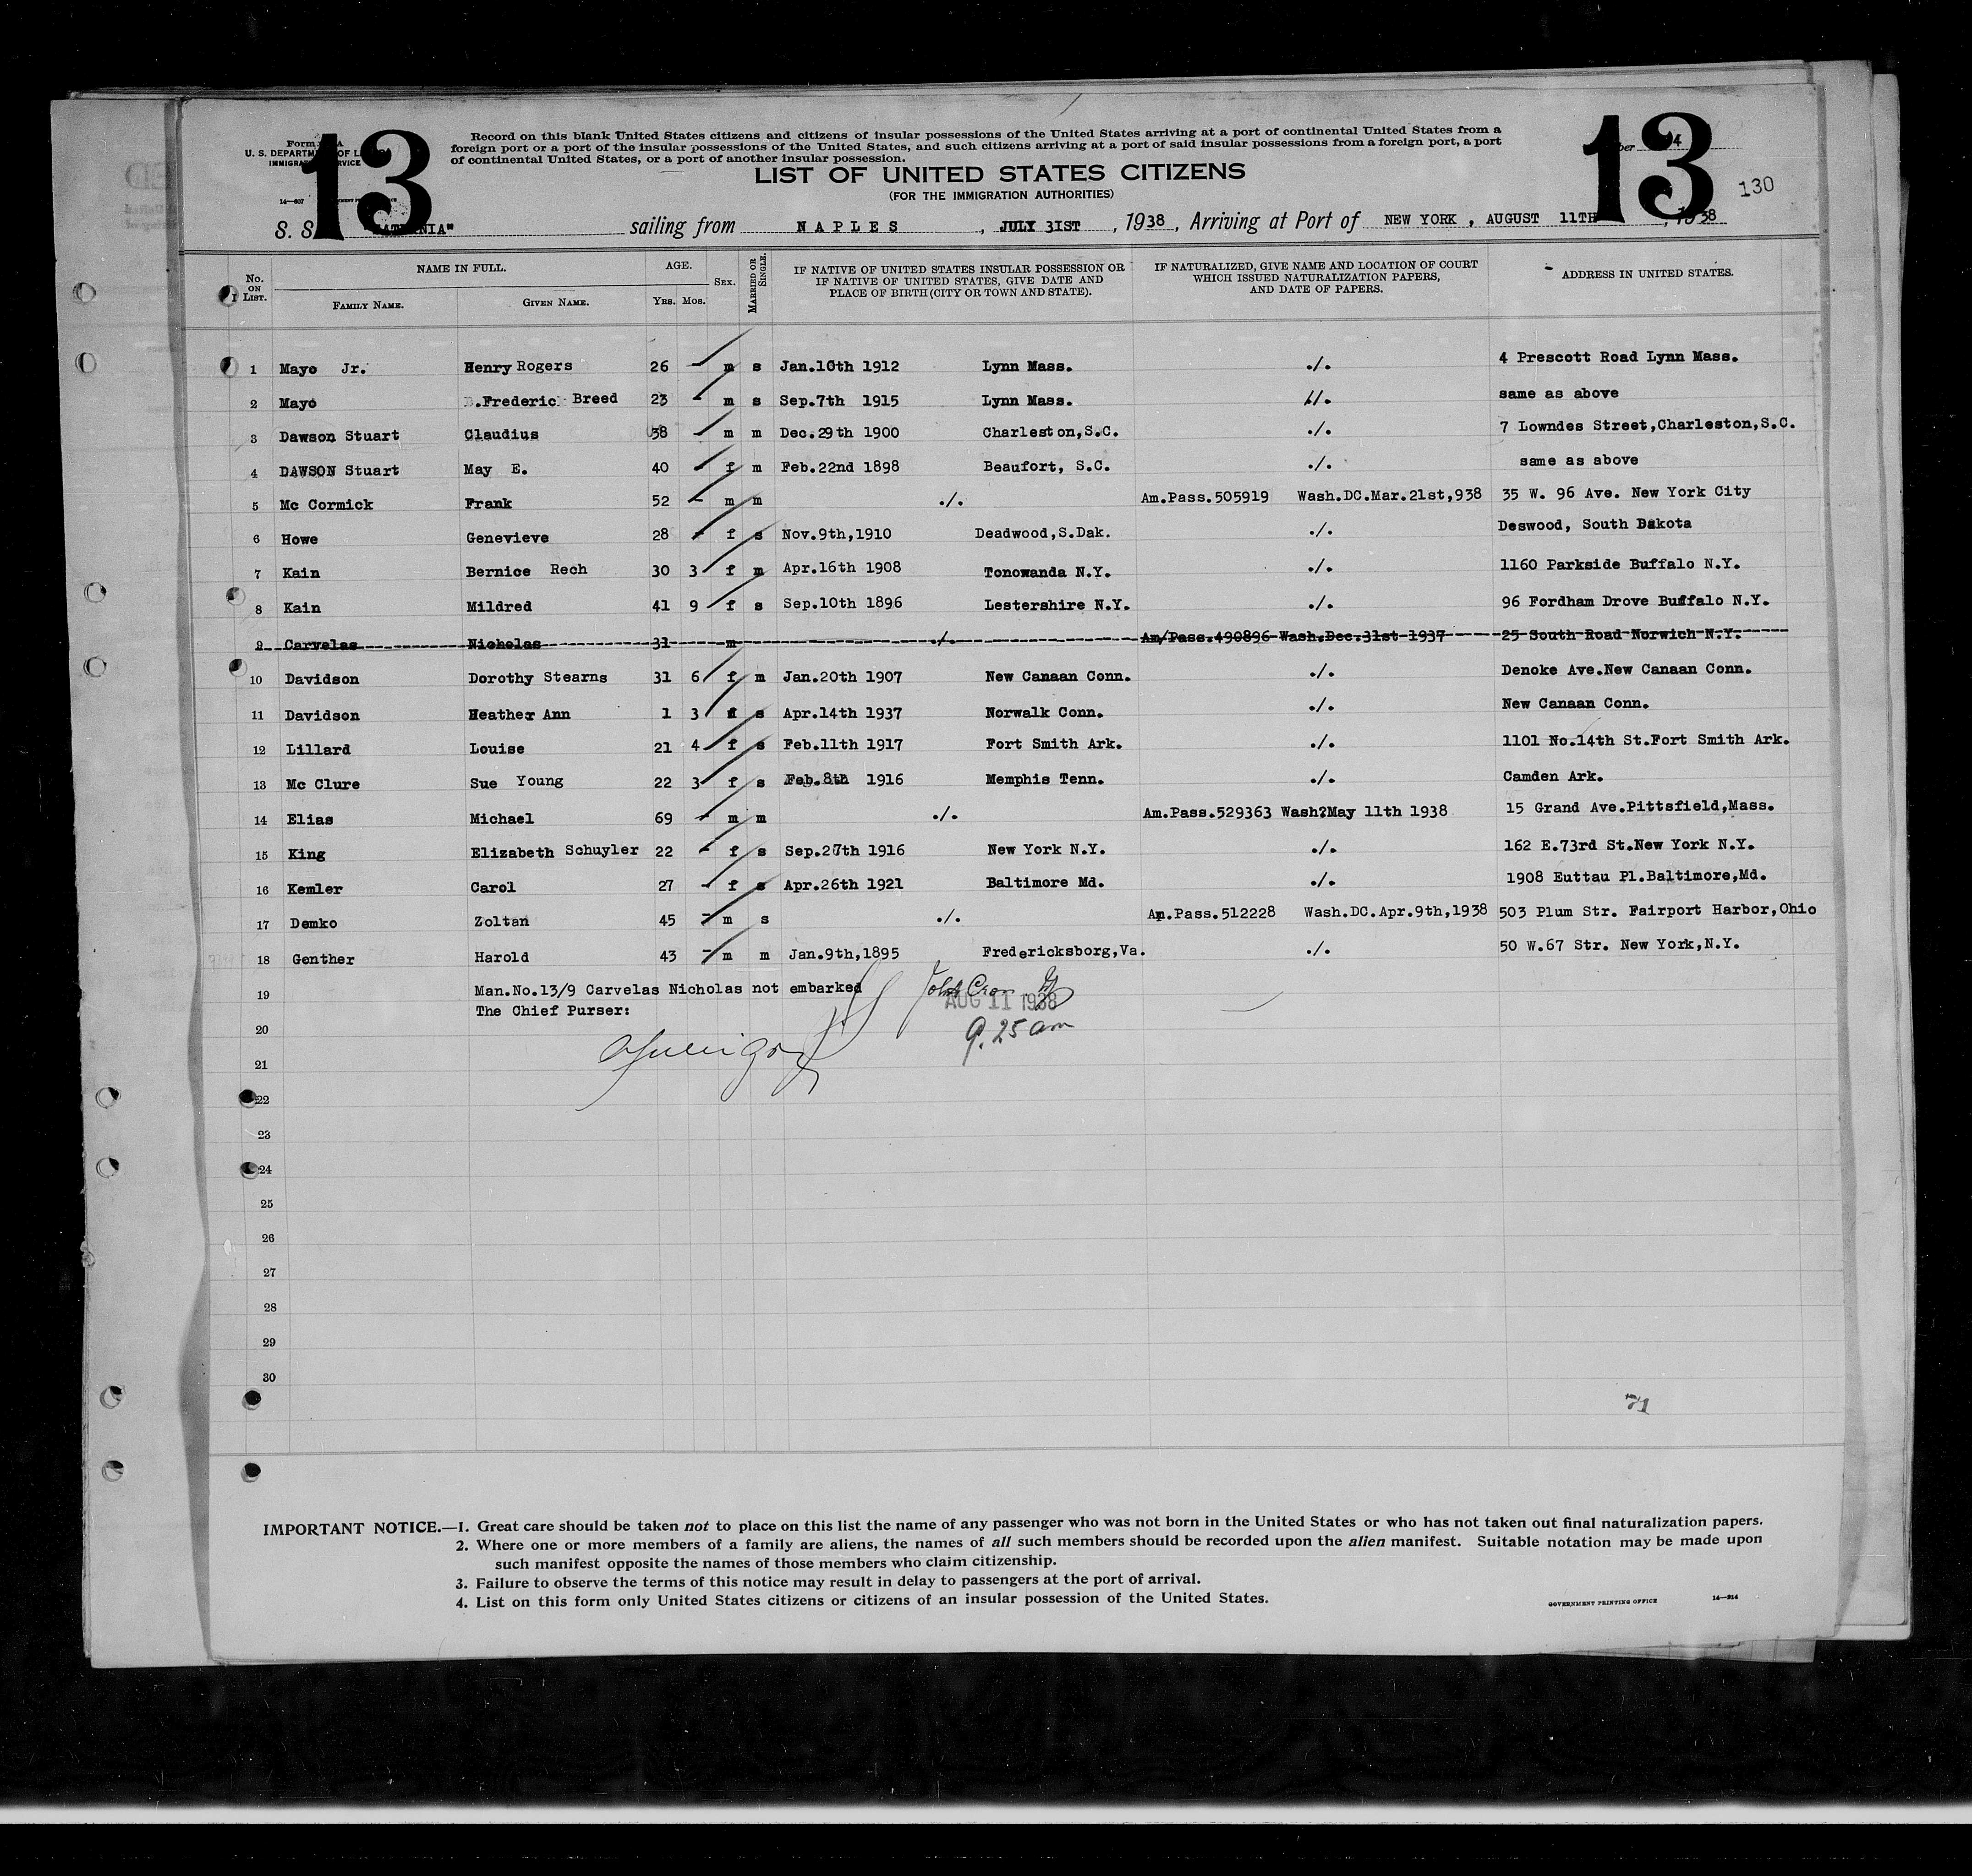 13
13
Form A
U. S. DEPARTM OF L
IMMIGRA SERVICE
14—607
Record on this blank United States citizens and citizens of insular possessions of the United States arriving at a port of continental United States from a
foreign port or a port of the insular possessions of the United States, and such citizens arriving at a port of said insular possessions from a foreign port, a port
of continental United States, or a port of another insular possession.
LIST OF UNITED STATES CITIZENS
(FOR THE IMMIGRATION AUTHORITIES)
130
S. S. NIA" sailing from NAPLES, JULY 31ST, 1938, Arriving at Port of NEW YORK, AUGUST 11TH, 1938
No. ON LIST.
NAME IN FULL.
FAMILY NAME.
GIVEN NAME.
AGE.
YRS. MOS.
SEX.
MARRIED OR SINGLE.
IF NATIVE OF UNITED STATES INSULAR POSSESSION OR
IF NATIVE OF UNITED STATES, GIVE DATE AND
PLACE OF BIRTH (CITY OR TOWN AND STATE).
IF NATURALIZED, GIVE NAME AND LOCATION OF COURT
WHICH ISSUED NATURALIZATION PAPERS,
AND DATE OF PAPERS.
ADDRESS IN UNITED STATES.
1 Mayo Jr. Henry Rogers 26 - m s Jan.10th 1912 Lynn Mass. ./. 4 Prescott Road Lynn Mass.
2 Mayo .Frederic Breed 23 - m s Sep.7th 1915 Lynn Mass. ./. same as above
3 Dawson Stuart Claudius 38 - m m Dec.29th 1900 Charleston,S.C. ./. 7 Lowndes Street,Charleston,S.C.
4 DAWSON Stuart May E. 40 - f m Feb.22nd 1898 Beaufort, S.C. ./. same as above
5 Mc Cormick Frank 52 - m m ./. Am.Pass.505919 Wash.DC.Mar.21st,938 35 W. 96 Ave. New York City
6 Howe Genevieve 28 - f s Nov.9th,1910 Deadwood,S.Dak. ./. Deswood, South Dakota
7 Kain Bernice Rech 30 3 f m Apr.16th 1908 Tonowanda N.Y. ./. 1160 Parkside Buffalo N.Y.
8 Kain Mildred 41 9 f s Sep.10th 1896 Lestershire N.Y. ./. 96 Fordham Drove Buffalo N.Y.
9 Carvelas Nicholas 31 m ./. Am/Pass.490896 Wash.Dec.31st 1937 25 South Road Norwich N.Y.
10 Davidson Dorothy Stearns 31 6 f m Jan.20th 1907 New Canaan Conn. ./. Denoke Ave.New Canaan Conn.
11 Davidson Heather Ann 1 3 f s Apr.14th 1937 Norwalk Conn. ./. New Canaan Conn.
12 Lillard Louise 21 4 f s Feb.11th 1917 Fort Smith Ark. ./. 1101 No.14th St.Fort Smith Ark.
13 Mc Clure Sue Young 22 3 f s Feb.8th 1916 Memphis Tenn. ./. Camden Ark.
14 Elias Michael 69 - m m ./. Am.Pass.529363 Wash?May 11th 1938 15 Grand Ave.Pittsfield,Mass.
15 King Elizabeth Schuyler 22 - f s Sep.27th 1916 New York N.Y. ./. 162 E.73rd St.New York N.Y.
16 Kemler Carol 27 - f s Apr.26th 1921 Baltimore Md. ./. 1908 Euttau Pl.Baltimore,Md.
17 Demko Zoltan 45 - m s ./. Am.Pass.512228 Wash.DC.Apr.9th,1938 503 Plum Str. Fairport Harbor,Ohio
18 Genther Harold 43 - m m Jan.9th,1895 Fredericksborg,Va. ./. 50 W.67 Str. New York,N.Y.
19 Man.No.13/9 Carvelas Nicholas not embarked
The Chief Purser:
AUG 11 1938
9.25 am
20
21
22
23
24
25
26
27
28
29
30
71
IMPORTANT NOTICE.—1. Great care should be taken not to place on this list the name of any passenger who was not born in the United States or who has not taken out final naturalization papers.
2. Where one or more members of a family are aliens, the names of all such members should be recorded upon the alien manifest. Suitable notation may be made upon
such manifest opposite the names of those members who claim citizenship.
3. Failure to observe the terms of this notice may result in delay to passengers at the port of arrival.
4. List on this form only United States citizens or citizens of an insular possession of the United States.
GOVERNMENT PRINTING OFFICE 14—914